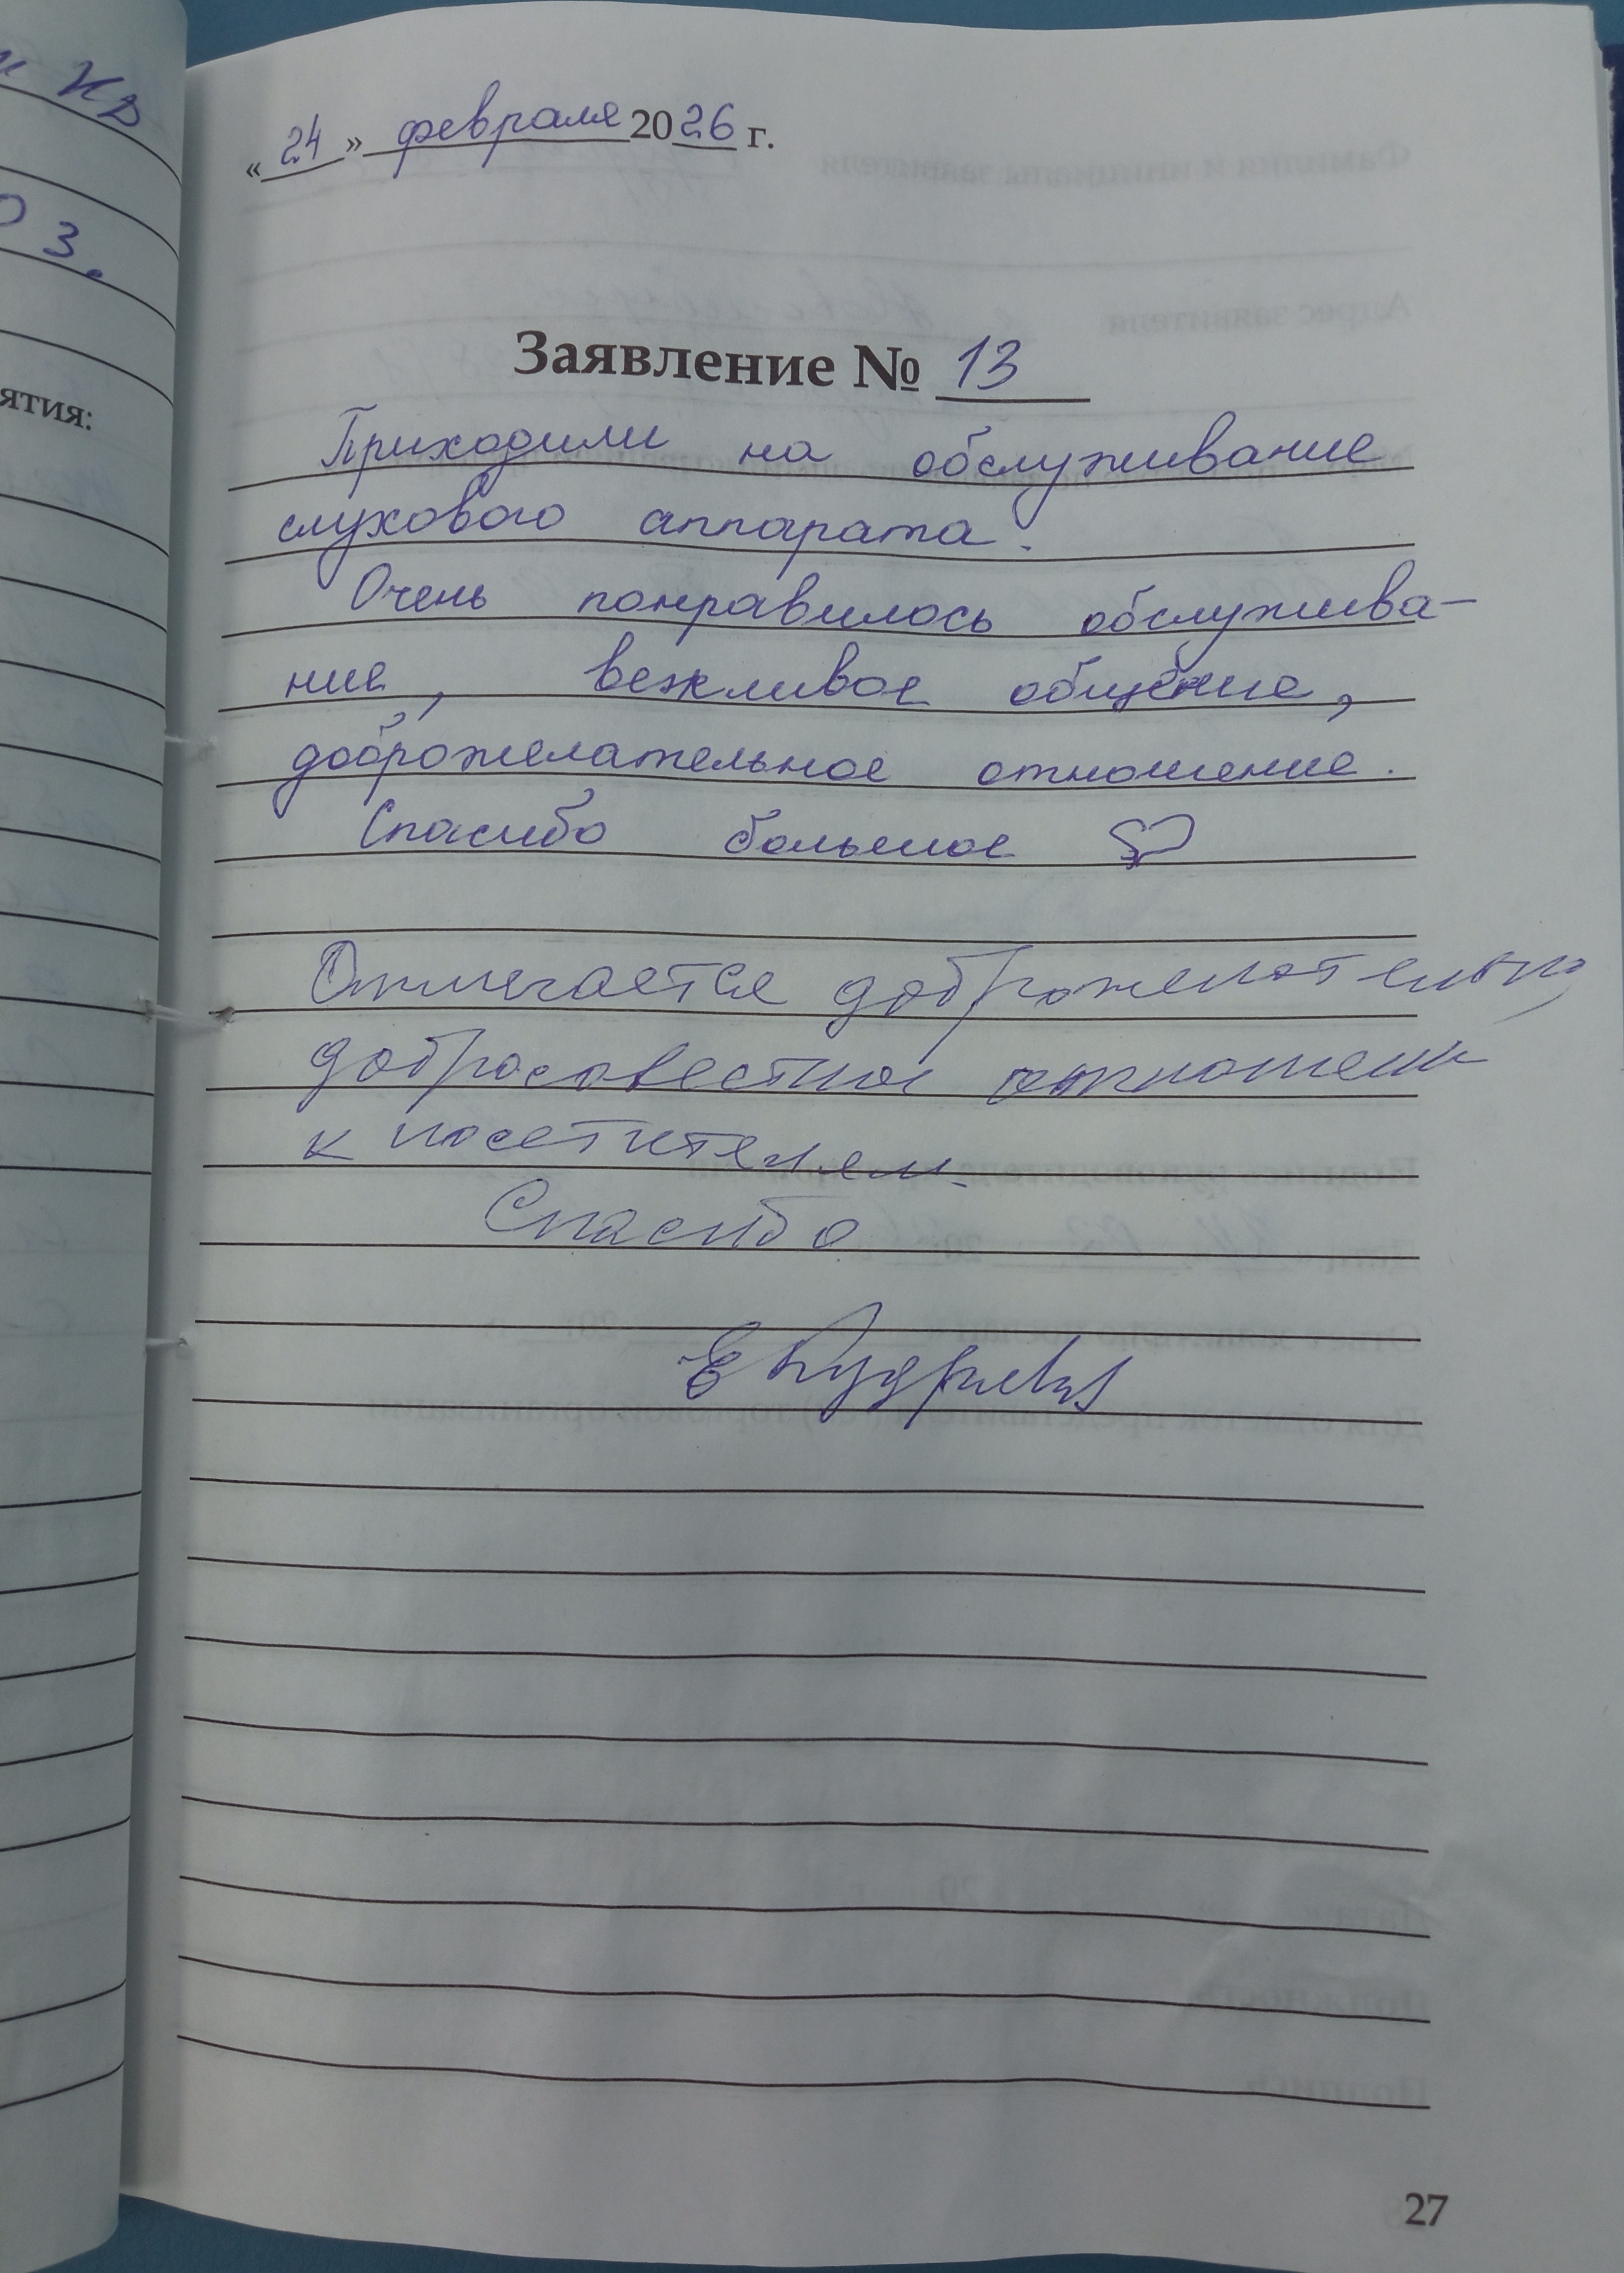 « 24 » февраля 2026 г.
Заявление № 13
Приходили на обслуживание
слухового аппарата.
Очень понравилось обслужива-
ние, вежливое общение,
доброжелательное отношение.
Спасибо большое
Отмечается доброжелательно,
добросовестное отношени
к посетителям.
Спасибо
ятия:
О З.
27